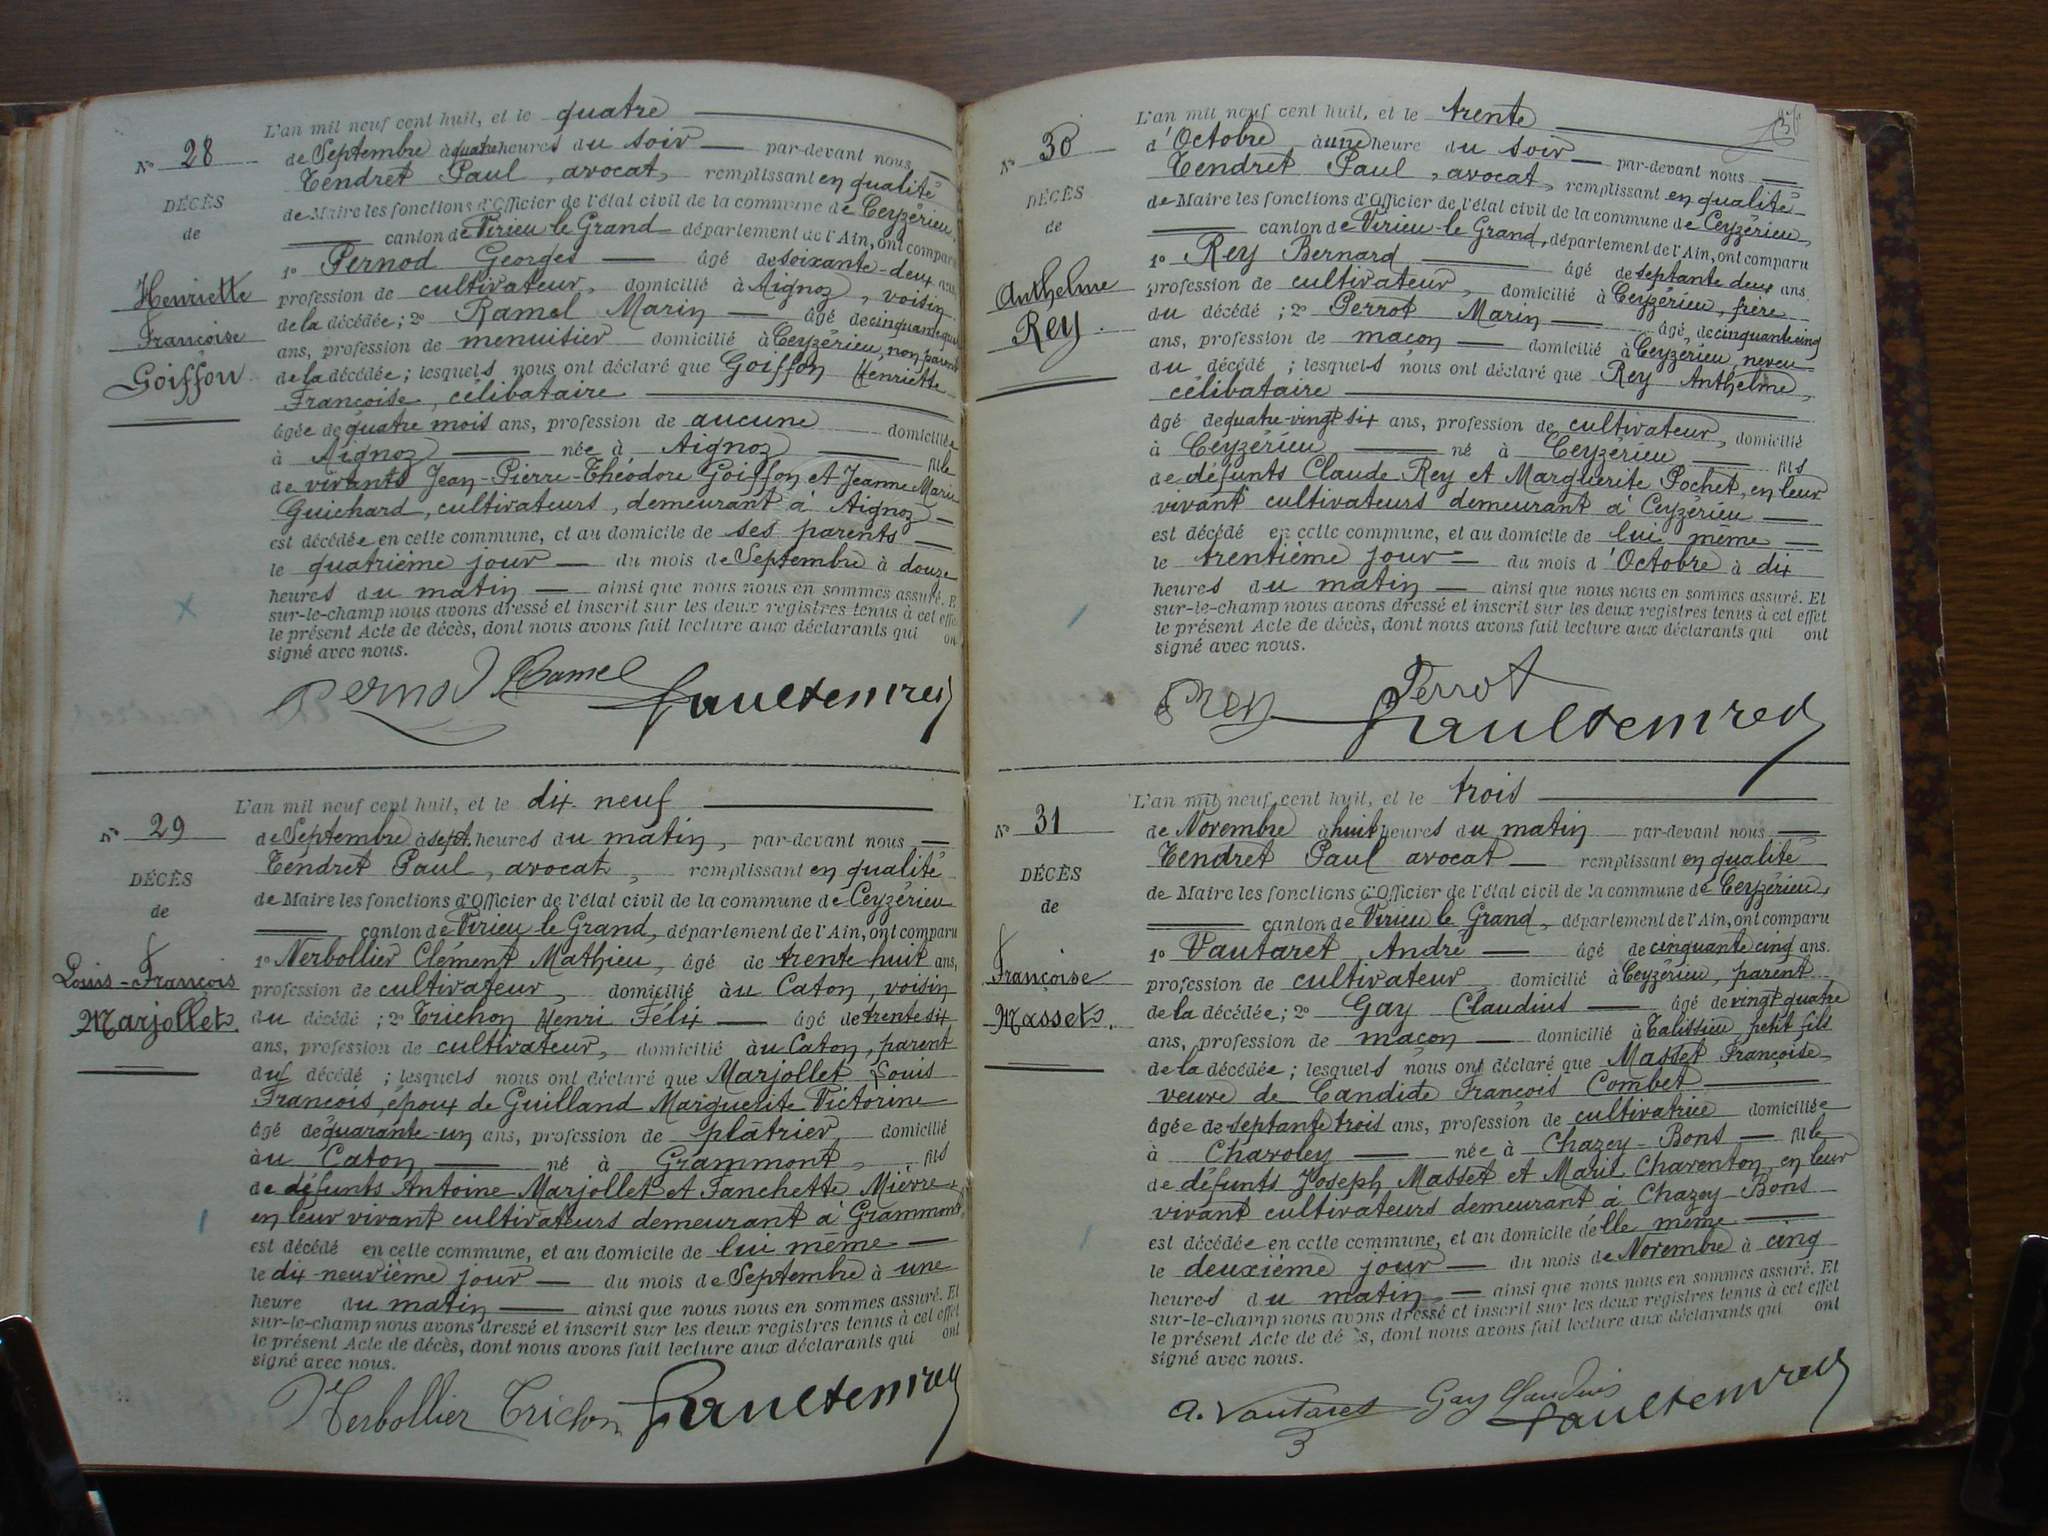 L'an mil neuf cent huit, et le quatre
N° 28
de Septembre à quatre heures du soir par-devant nous
Tendret Paul, avocat, remplissant en qualité
DÉCÈS
de Maire les fonctions d'Officier de l'état civil de la commune de Ceyzérieu
de
canton de Virieu le Grand département de l'Ain, ont comparu
1° Pernod Georges âgé de soixante-deux ans
Henriette
profession de cultivateur, domicilié à Aignoz, voisin
Françoise
de la décédée; 2° Ramel Marin âgé de cinquante
Goiffon
ans, profession de menuisier domicilié à Ceyzérieu, non parent
de la décédée; lesquels nous ont déclaré que Goiffon Henriette
Françoise, célibataire
âgée de quatre mois ans, profession de aucune domiciliée
à Aignoz née à Aignoz fille
de vivants Jean-Pierre-Théodore Goiffon et Jeanne Marie
Guichard, cultivateurs, demeurant à Aignoz
est décédée en cette commune, et au domicile de ses parents
le quatrième jour du mois de Septembre à douze
heures du matin ainsi que nous nous en sommes assuré. E
sur-le-champ nous avons dressé et inscrit sur les deux registres tenus à cet effe
le présent Acte de décès, dont nous avons fait lecture aux déclarants qui on
signé avec nous.
Pernod Ramel Paul Tendret
L'an mil neuf cent huit, et le dix neuf
N° 29
de Septembre à sept heures du matin, par-devant nous
Tendret Paul, avocat, remplissant en qualité
DÉCÈS
de Maire les fonctions d'Officier de l'état civil de la commune de Ceyzérieu
de
canton de Virieu le Grand, département de l'Ain, ont comparu
1° Nerbollier Clément Mathieu, âgé de trente huit ans,
Louis-François
profession de cultivateur, domicilié au Caton, voisin
Marjollet.
du décédé; 2° Trichon Henri Félix âgé de trente six
ans, profession de cultivateur, domicilié au Caton, parent
du décédé; lesquels nous ont déclaré que Marjollet Louis
François, époux de Guilland Marguerite Victorine
âgé de quarante-un ans, profession de plâtrier domicilié
au Caton né à Grammont, fils
de défunts Antoine Marjollet et Fanchette Mièvre
en leur vivant cultivateurs demeurant à Grammont
est décédé en cette commune, et au domicile de lui même
le dix-neuvième jour du mois de Septembre à une
heure du matin ainsi que nous nous en sommes assuré. Et
sur-le-champ nous avons dressé et inscrit sur les deux registres tenus à cet effet
le présent Acte de décès, dont nous avons fait lecture aux déclarants qui ont
signé avec nous.
Nerbollier Trichon Paul Tendret
L'an mil neuf cent huit, et le trente
N° 30
d'Octobre à une heure du soir par-devant nous
Tendret Paul, avocat, remplissant en qualité
DÉCÈS
de Maire les fonctions d'Officier de l'état civil de la commune de Ceyzérieu,
de
canton de Virieu-le Grand, département de l'Ain, ont comparu
1° Rey Bernard âgé de septante deux ans
Anthelme
profession de cultivateur, domicilié à Ceyzérieu, frère
Rey.
du décédé; 2° Perrot Marin âgé de cinquante cinq
ans, profession de maçon domicilié à Ceyzérieu, neveu
du décédé; lesquels nous ont déclaré que Rey Anthelme,
célibataire
âgé de quatre-vingt six ans, profession de cultivateur, domicilié
à Ceyzérieu né à Ceyzérieu fils
de défunts Claude Rey et Marguerite Pochet, en leur
vivant cultivateurs demeurant à Ceyzérieu
est décédé en cette commune, et au domicile de lui même
le trentième jour du mois d'Octobre à dix
heures du matin ainsi que nous nous en sommes assuré. Et
sur-le-champ nous avons dressé et inscrit sur les deux registres tenus à cet effet
le présent Acte de décès, dont nous avons fait lecture aux déclarants qui ont
signé avec nous.
Rey Perrot Paul Tendret
L'an mil neuf cent huit, et le trois
N° 31
de Novembre à huit heures du matin par-devant nous
Tendret Paul avocat remplissant en qualité
DÉCÈS
de Maire les fonctions d'Officier de l'état civil de la commune de Ceyzérieu,
de
canton de Virieu le Grand, département de l'Ain, ont comparu
1° Vautaret André âgé de cinquante cinq ans.
Françoise
profession de cultivateur domicilié à Ceyzérieu, parent
Masset.
de la décédée; 2° Gay Claudius âgé de vingt quatre
ans, profession de maçon domicilié à Talissieu, petit fils
de la décédée; lesquels nous ont déclaré que Masset Françoise
veuve de Candide François Combet
âgée de septante trois ans, profession de cultivatrice domiciliée
à Charoley née à Chazey-Bons fille
de défunts Joseph Masset et Marie Charenton, en leur
vivant cultivateurs demeurant à Chazey-Bons
est décédée en cette commune, et au domicile d'elle même
le deuxième jour du mois de Novembre à cinq
heures du matin, ainsi que nous nous en sommes assuré. Et
sur-le-champ nous avons dressé et inscrit sur les deux registres tenus à cet effet
le présent Acte de décès, dont nous avons fait lecture aux déclarants qui ont
signé avec nous.
A. Vautaret Gay Claudius Paul Tendret
3